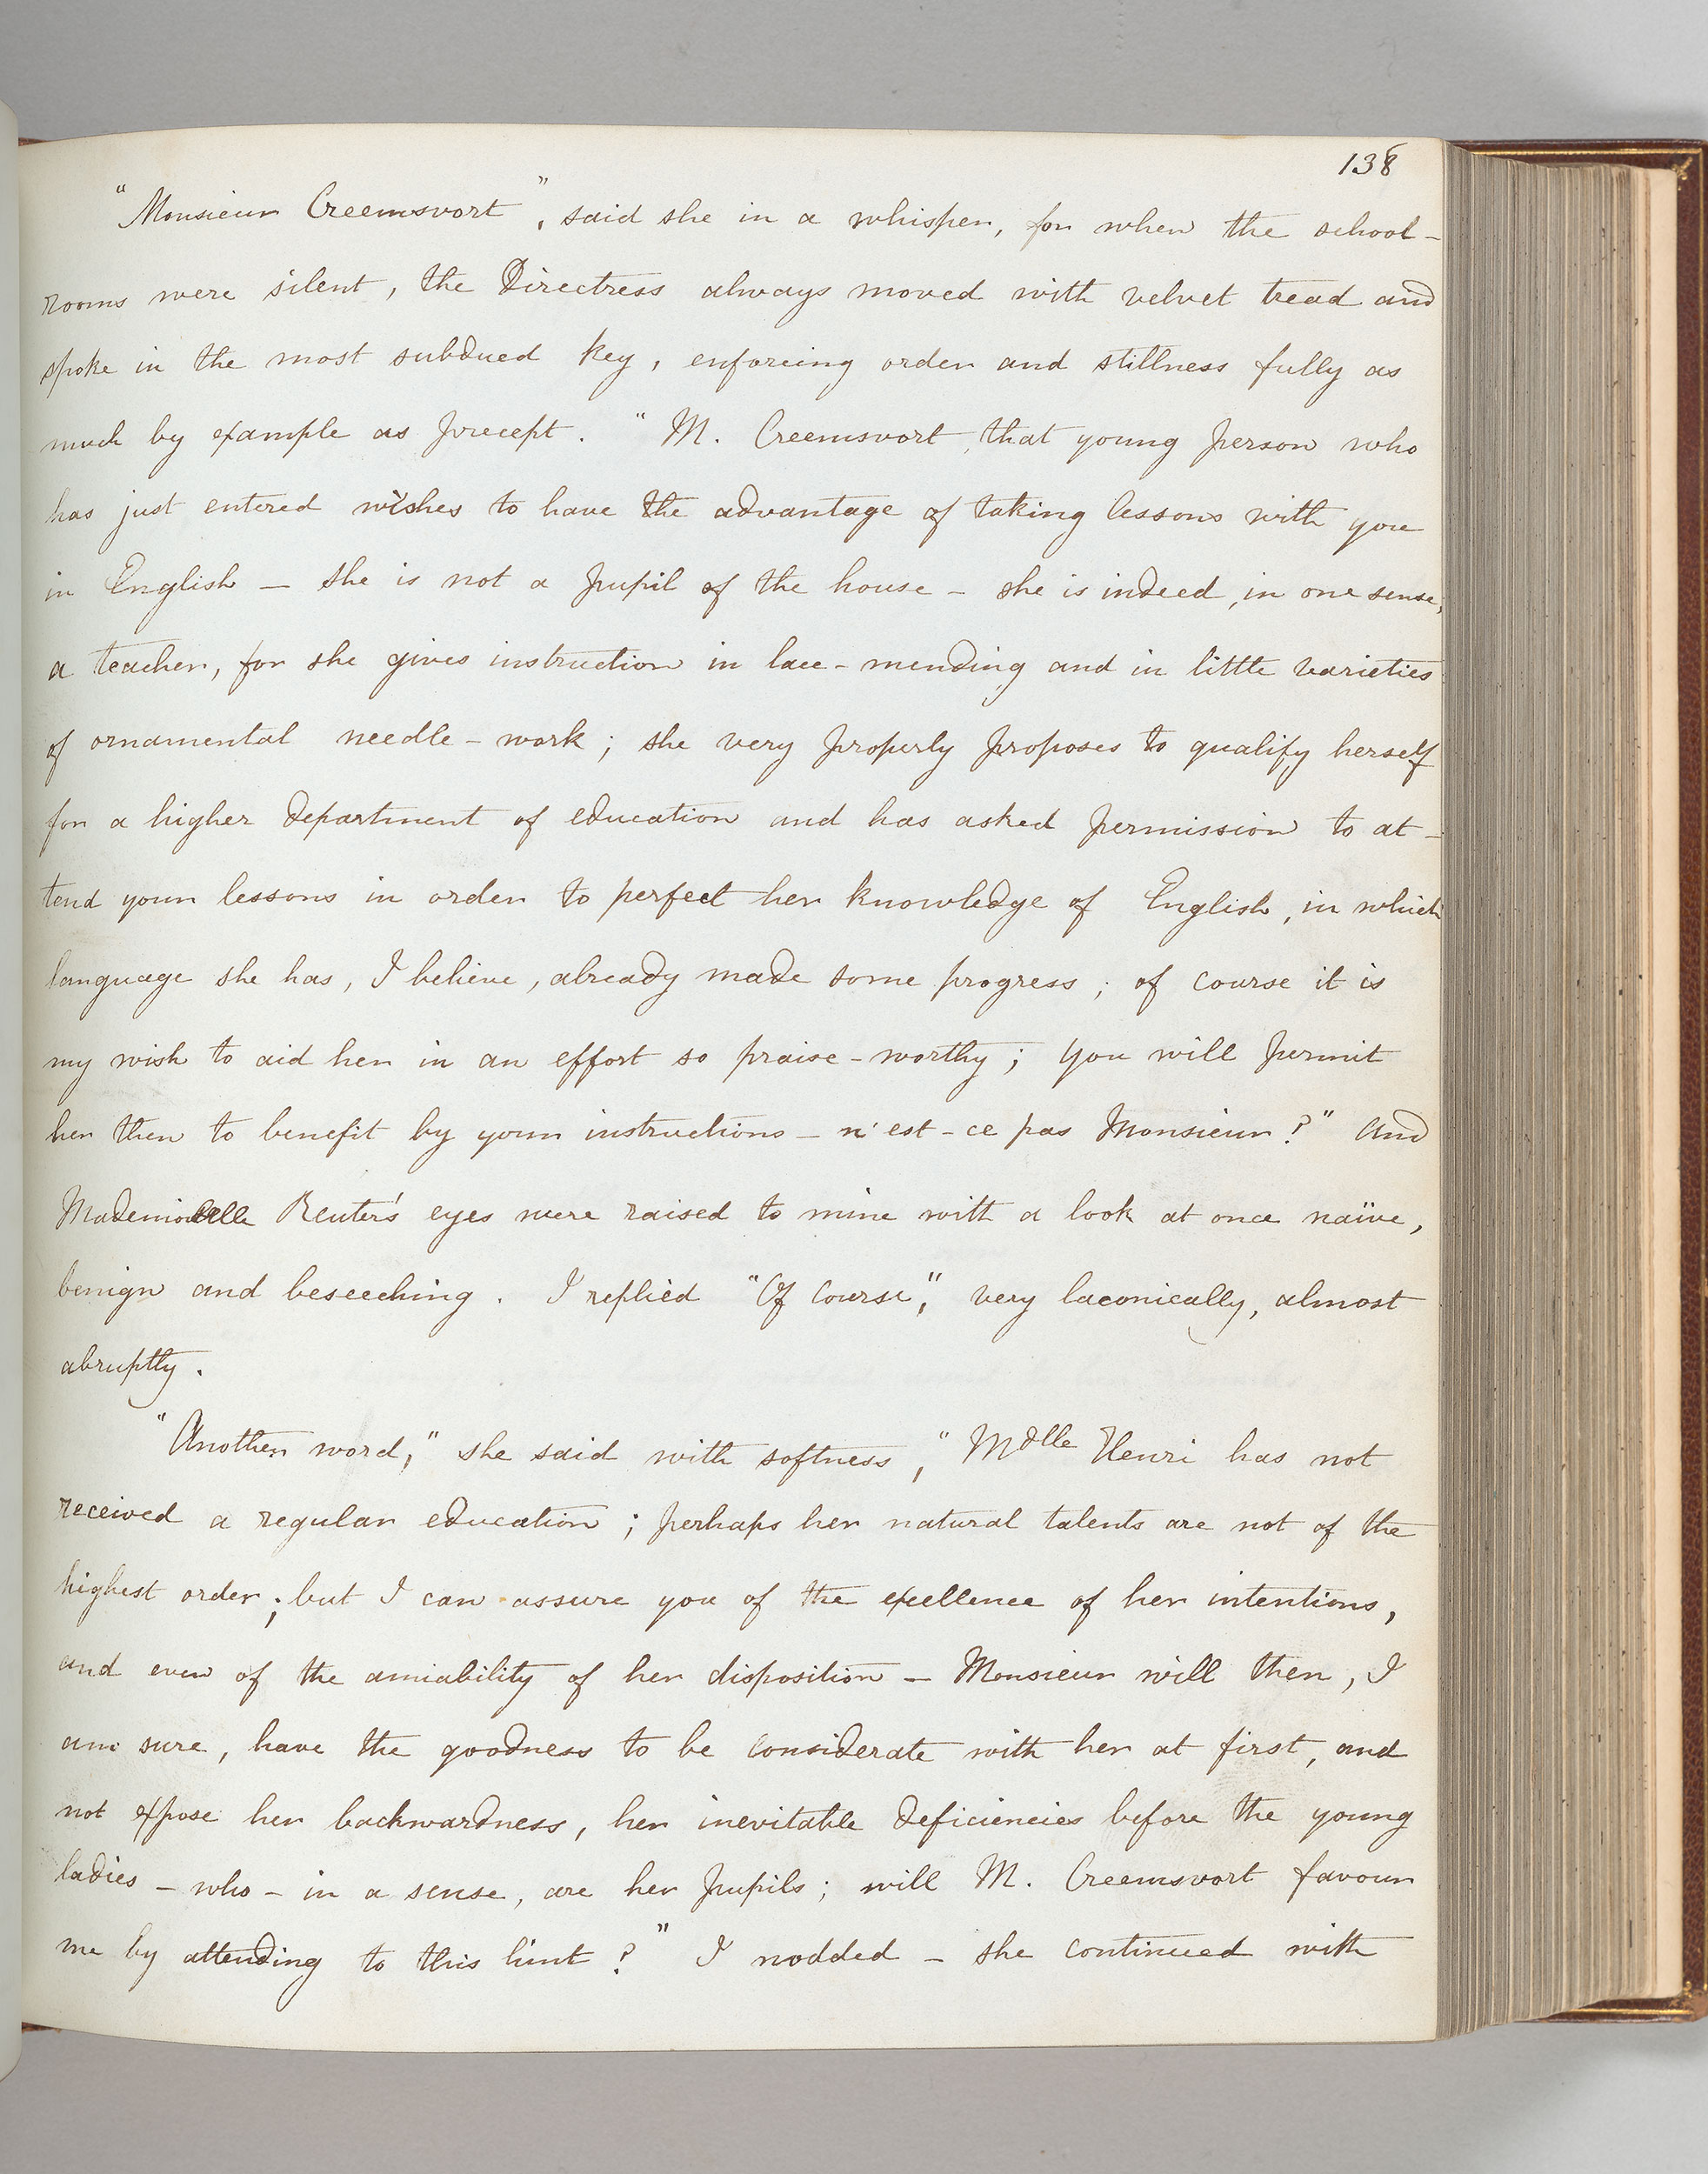 138
"Monsieur Creemsvort", said she in a whisper, for when the school-
rooms were silent, the Directress always moved with velvet tread and
spoke in the most subdued key, enforcing order and stillness fully as
much by example as precept. "M. Creemsvort, that young person who
has just entered wishes to have the advantage of taking lessons with you
in English — she is not a pupil of the house — she is indeed, in one sense,
a teacher, for she gives instruction in lace-mending and in little varieties
of ornamental needle-work; she very properly proposes to qualify herself
for a higher department of education and has asked permission to at-
tend your lessons in order to perfect her knowledge of English, in which
language she has, I believe, already made some progress; of course it is
my wish to aid her in an effort so praise-worthy; you will permit
her then to benefit by your instructions — n'est-ce pas Monsieur?" And
Mademoiselle Reuter's eyes were raised to mine with a look at once naïve,
benign and beseeching. I replied "Of course", very laconically, almost
abruptly.
"Another word," she said with softness, "Mdlle Henri has not
received a regular education; perhaps her natural talents are not of the
highest order; but I can assure you of the excellence of her intentions,
and even of the amiability of her disposition — Monsieur will then, I
am sure, have the goodness to be considerate with her at first, and
not expose her backwardness, her inevitable deficiencies before the young
ladies — who — in a sense, are her pupils; will M. Creemsvort favour
me by attending to this hint?" I nodded — she continued with